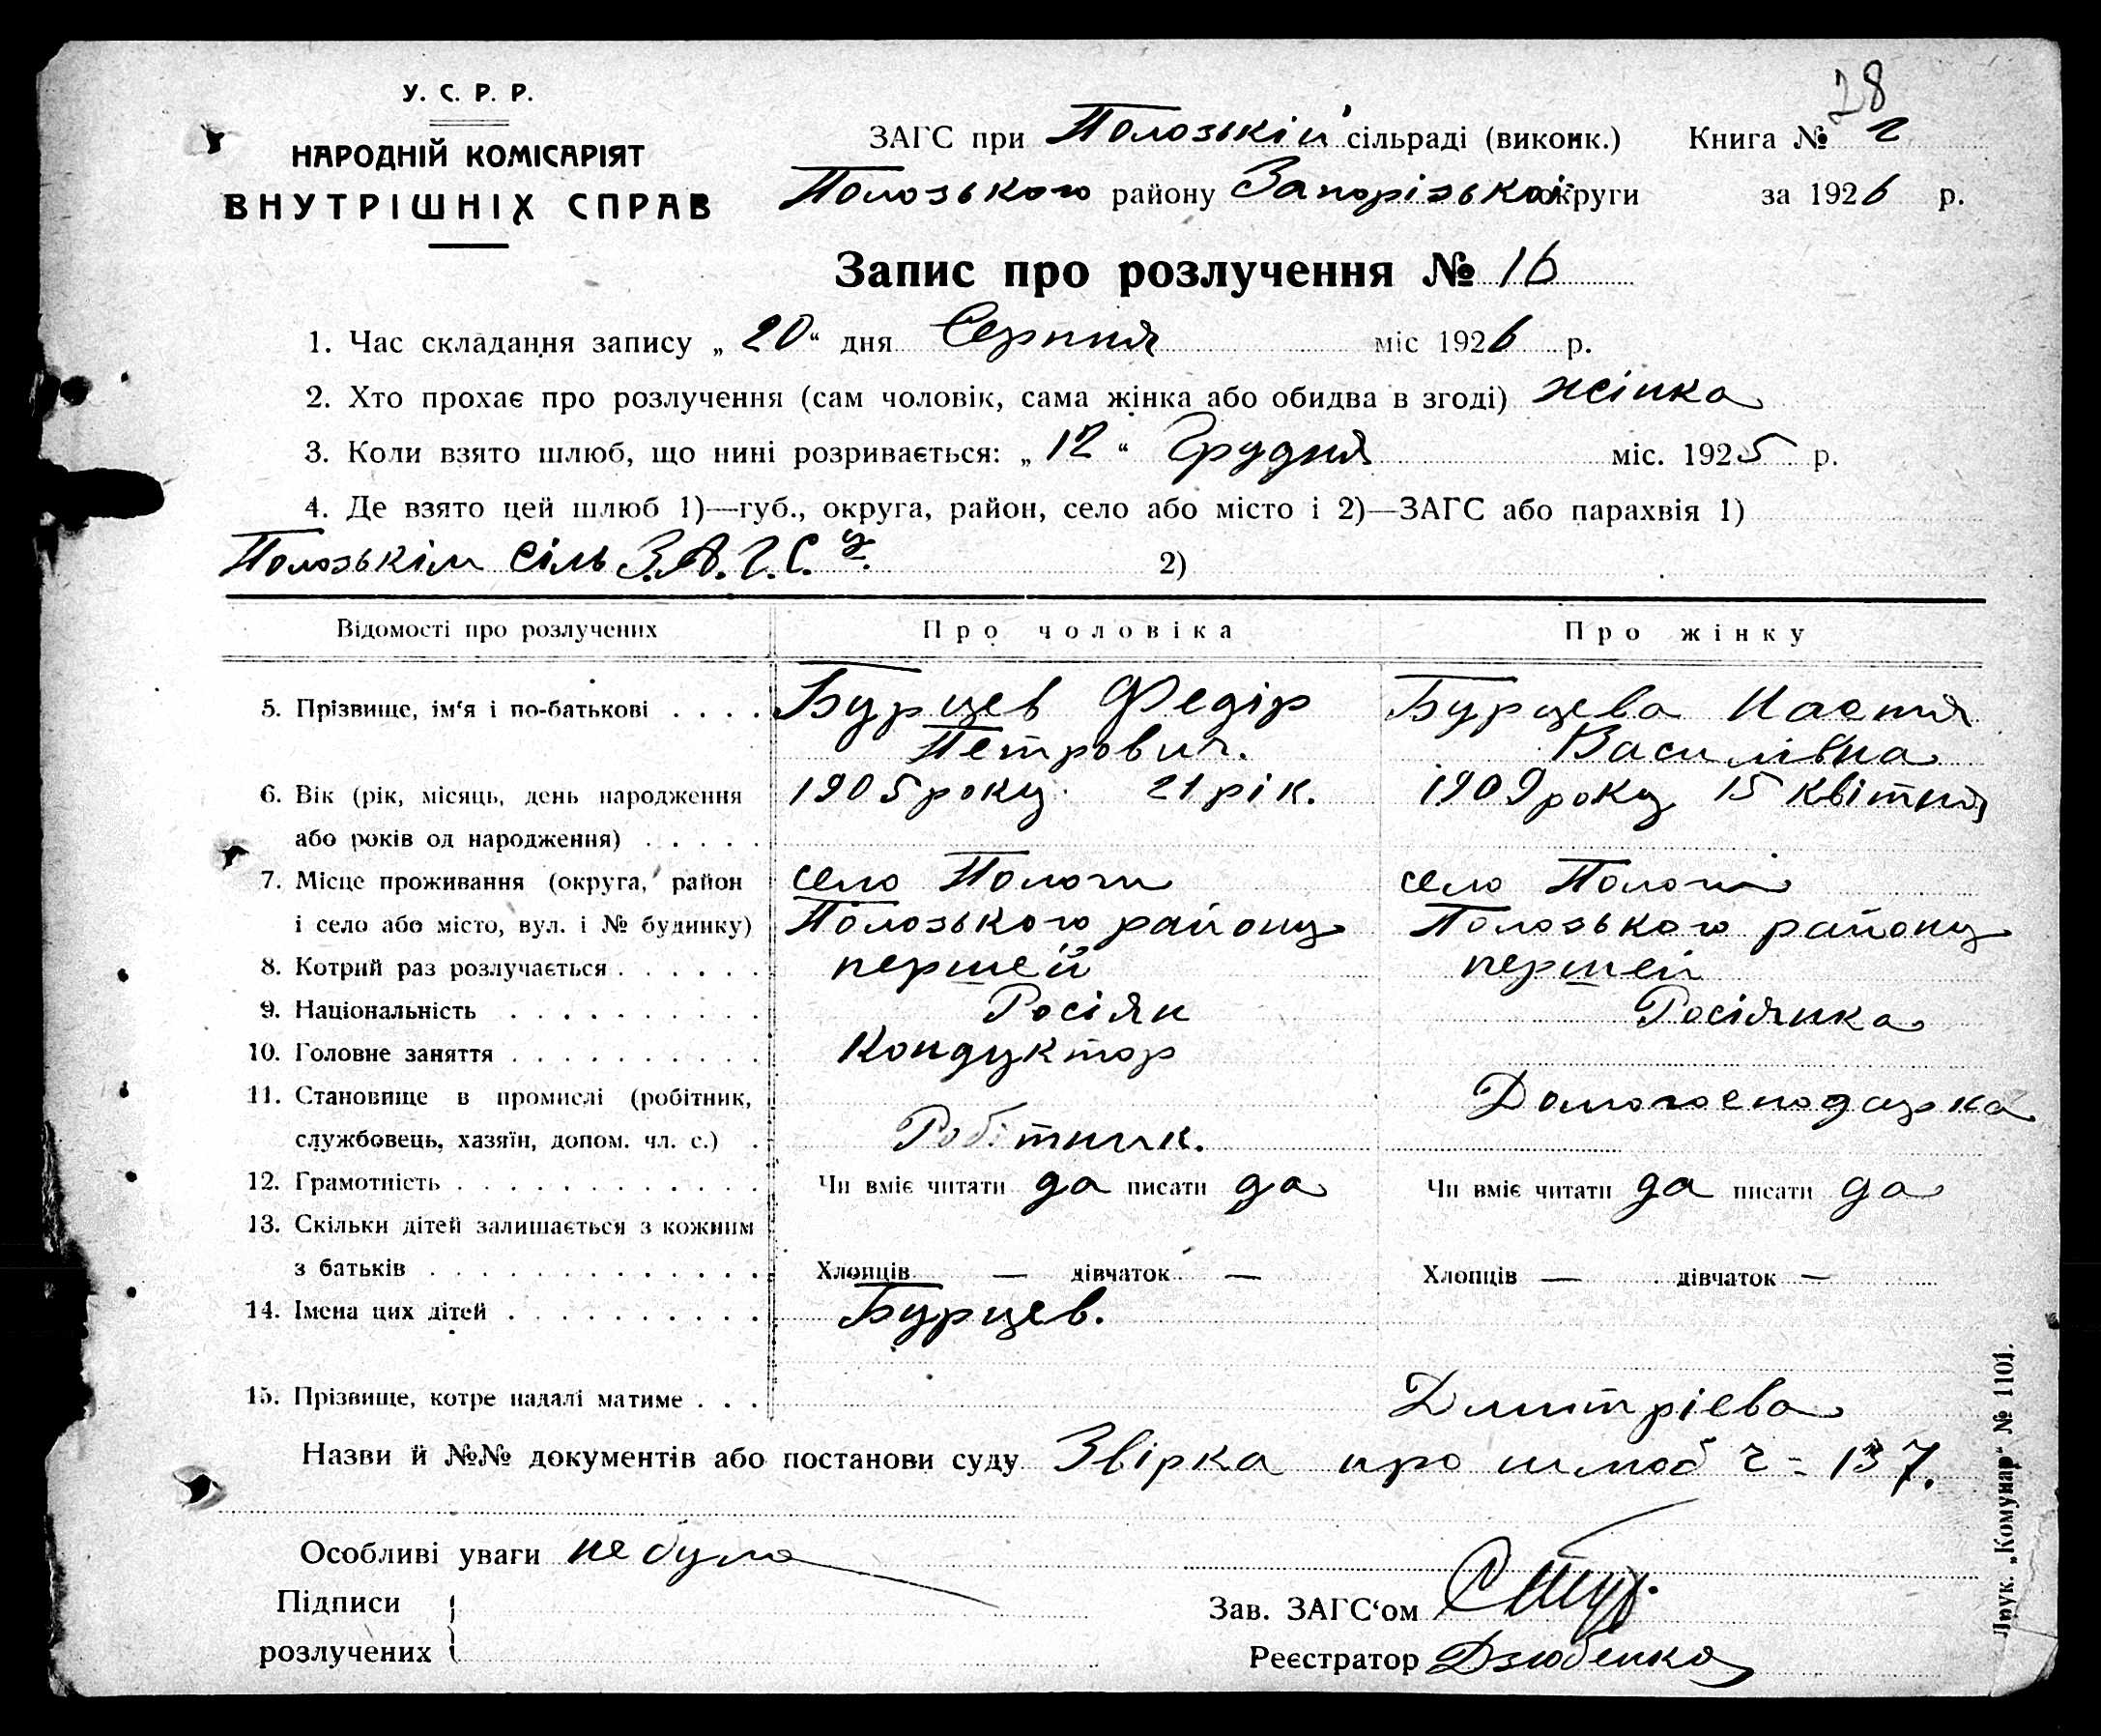 28
У. С. Р. Р.
НАРОДНІЙ КОМІСАРІЯТ
ВНУТРІШНІХ СПРАВ
ЗАГС при Полозькій сільраді (виконк.) Книга № 2
Полозького району Запорізької округи за 1926 р.
Запис про розлучення № 16
1. Час складання запису „20“ дня Серпня міс 1926 р.
2. Хто прохає про розлучення (сам чоловік, сама жінка або обидва в згоді) жінка
3. Коли взято шлюб, що нині розривається: „12“ Грудня міс. 1925 р.
4. Де взято цей шлюб 1)—губ., округа, район, село або місто і 2)—ЗАГС або парахвія 1)
Полозькім сіль З.А.Г.С. 2)
Відомості про розлучених Про чоловіка Про жінку
5. Прізвище, ім‘я і по-батькові . . . . Бурцев Федір Бурцева Настя
Петрович. Василівна
6. Вік (рік, місяць, день народження 1905 року 21 рік. 1909 року 15 квітня
або років од народження) . . . . .
7. Місце проживання (округа, район село Пологи село Пологи
і село або місто, вул. і № будинку) Полозького району Полозького району
8. Котрий раз розлучається . . . . . . першей першей
9. Національність . . . . . . . . . . Росіян Росіянка
10. Головне заняття . . . . . . . . . . Кондуктор
11. Становище в промислі (робітник, Домогосподарка
службовець, хазяїн, допом. чл. с.) . Робітник.
12. Грамотність . . . . . . . . . . . . Чи вміє читати да писати да Чи вміє читати да писати да
13. Скільки дітей залишається з кожним
з батьків . . . . . . . . . . . . . . Хлопців — дівчаток — Хлопців — дівчаток —
14. Імена цих дітей . . . . . . . . . . Бурцев.
15. Прізвище, котре надалі матиме . . . Дмитріева
Назви й №№ документів або постанови суду Звірка про шлюб ч = 137.
Особливі уваги не було
Підписи
розлучених
Зав. ЗАГС‘ом
Реєстратор Дзюбенко
Друк. „Комунар“ № 1101.